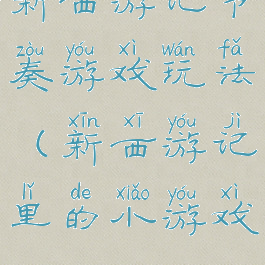 新西游记节
zòu yóu xì wán fǎ
奏游戏玩法
xīn xī yóu jì
（新西游记
lǐ de xiǎo yóu xì
里的小游戏